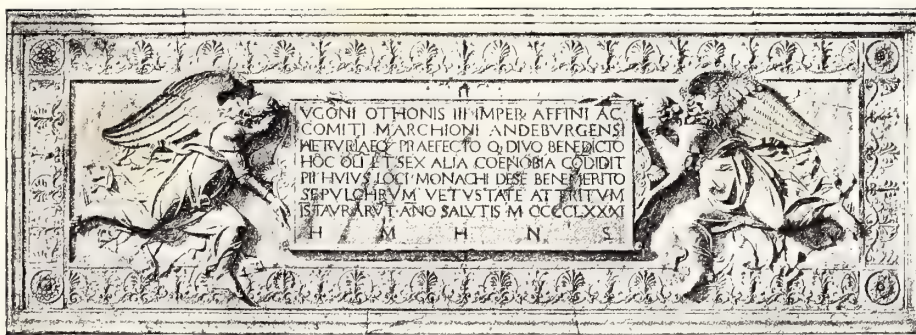 VGONI OTHONIS III IMPER AFFINI AC
COMITI MARCHIONI ANDEBVRGENSI
HETRVRIAEQ PRAEFECTO Q DIVO BENEDICTO
HOC OLI ET SEX ALIA COENOBIA CODIDIT
PII HVIVS LOCI MONACHI DESE BENEMERITO
SEPVLCHRVM VETVSTATE ATTRITVM
ISTAVRARVT ANO SALVTIS M CCCCLXXXI
H M H N S